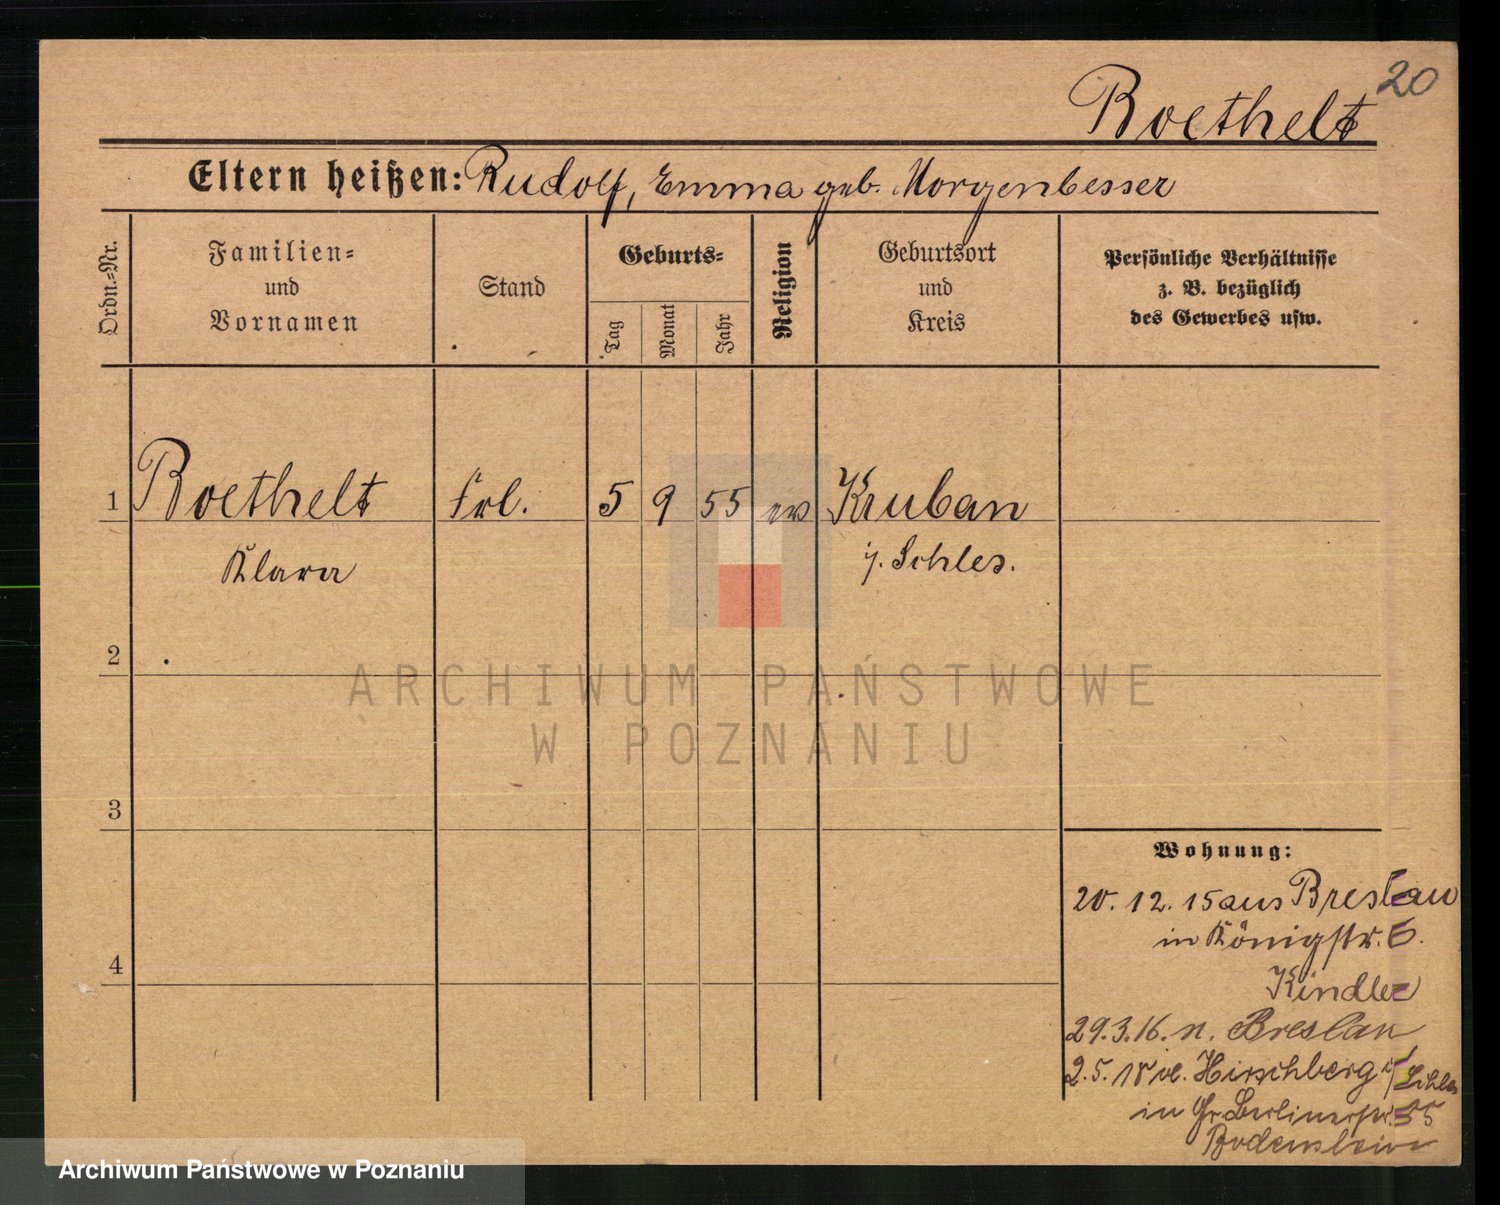 20
Boethelt
Eltern heißen: Rudolf, Emma geb. Morgenbesser
Ordn.-Nr.
Familien-
und
Vornamen
Stand
Geburts-
Tag
Monat
Jahr
Religion
Geburtsort
und
Kreis
Persönliche Verhältnisse
z. B. bezüglich
des Gewerbes usw.
1 Boethelt Frl. 5 9 55 ev Kruban
Klara i. Schles.
2
ARCHIWUM PAŃSTWOWE
W POZNANIU
3
Wohnung:
20. 12. 15 aus Breslau
in Königstr. 6.
4
Kindler
29.3.16. n. Breslau
2.5.18 Hirschberg i/Schles
in Gr. Berlinerstr. 35
Archiwum Państwowe w Poznaniu